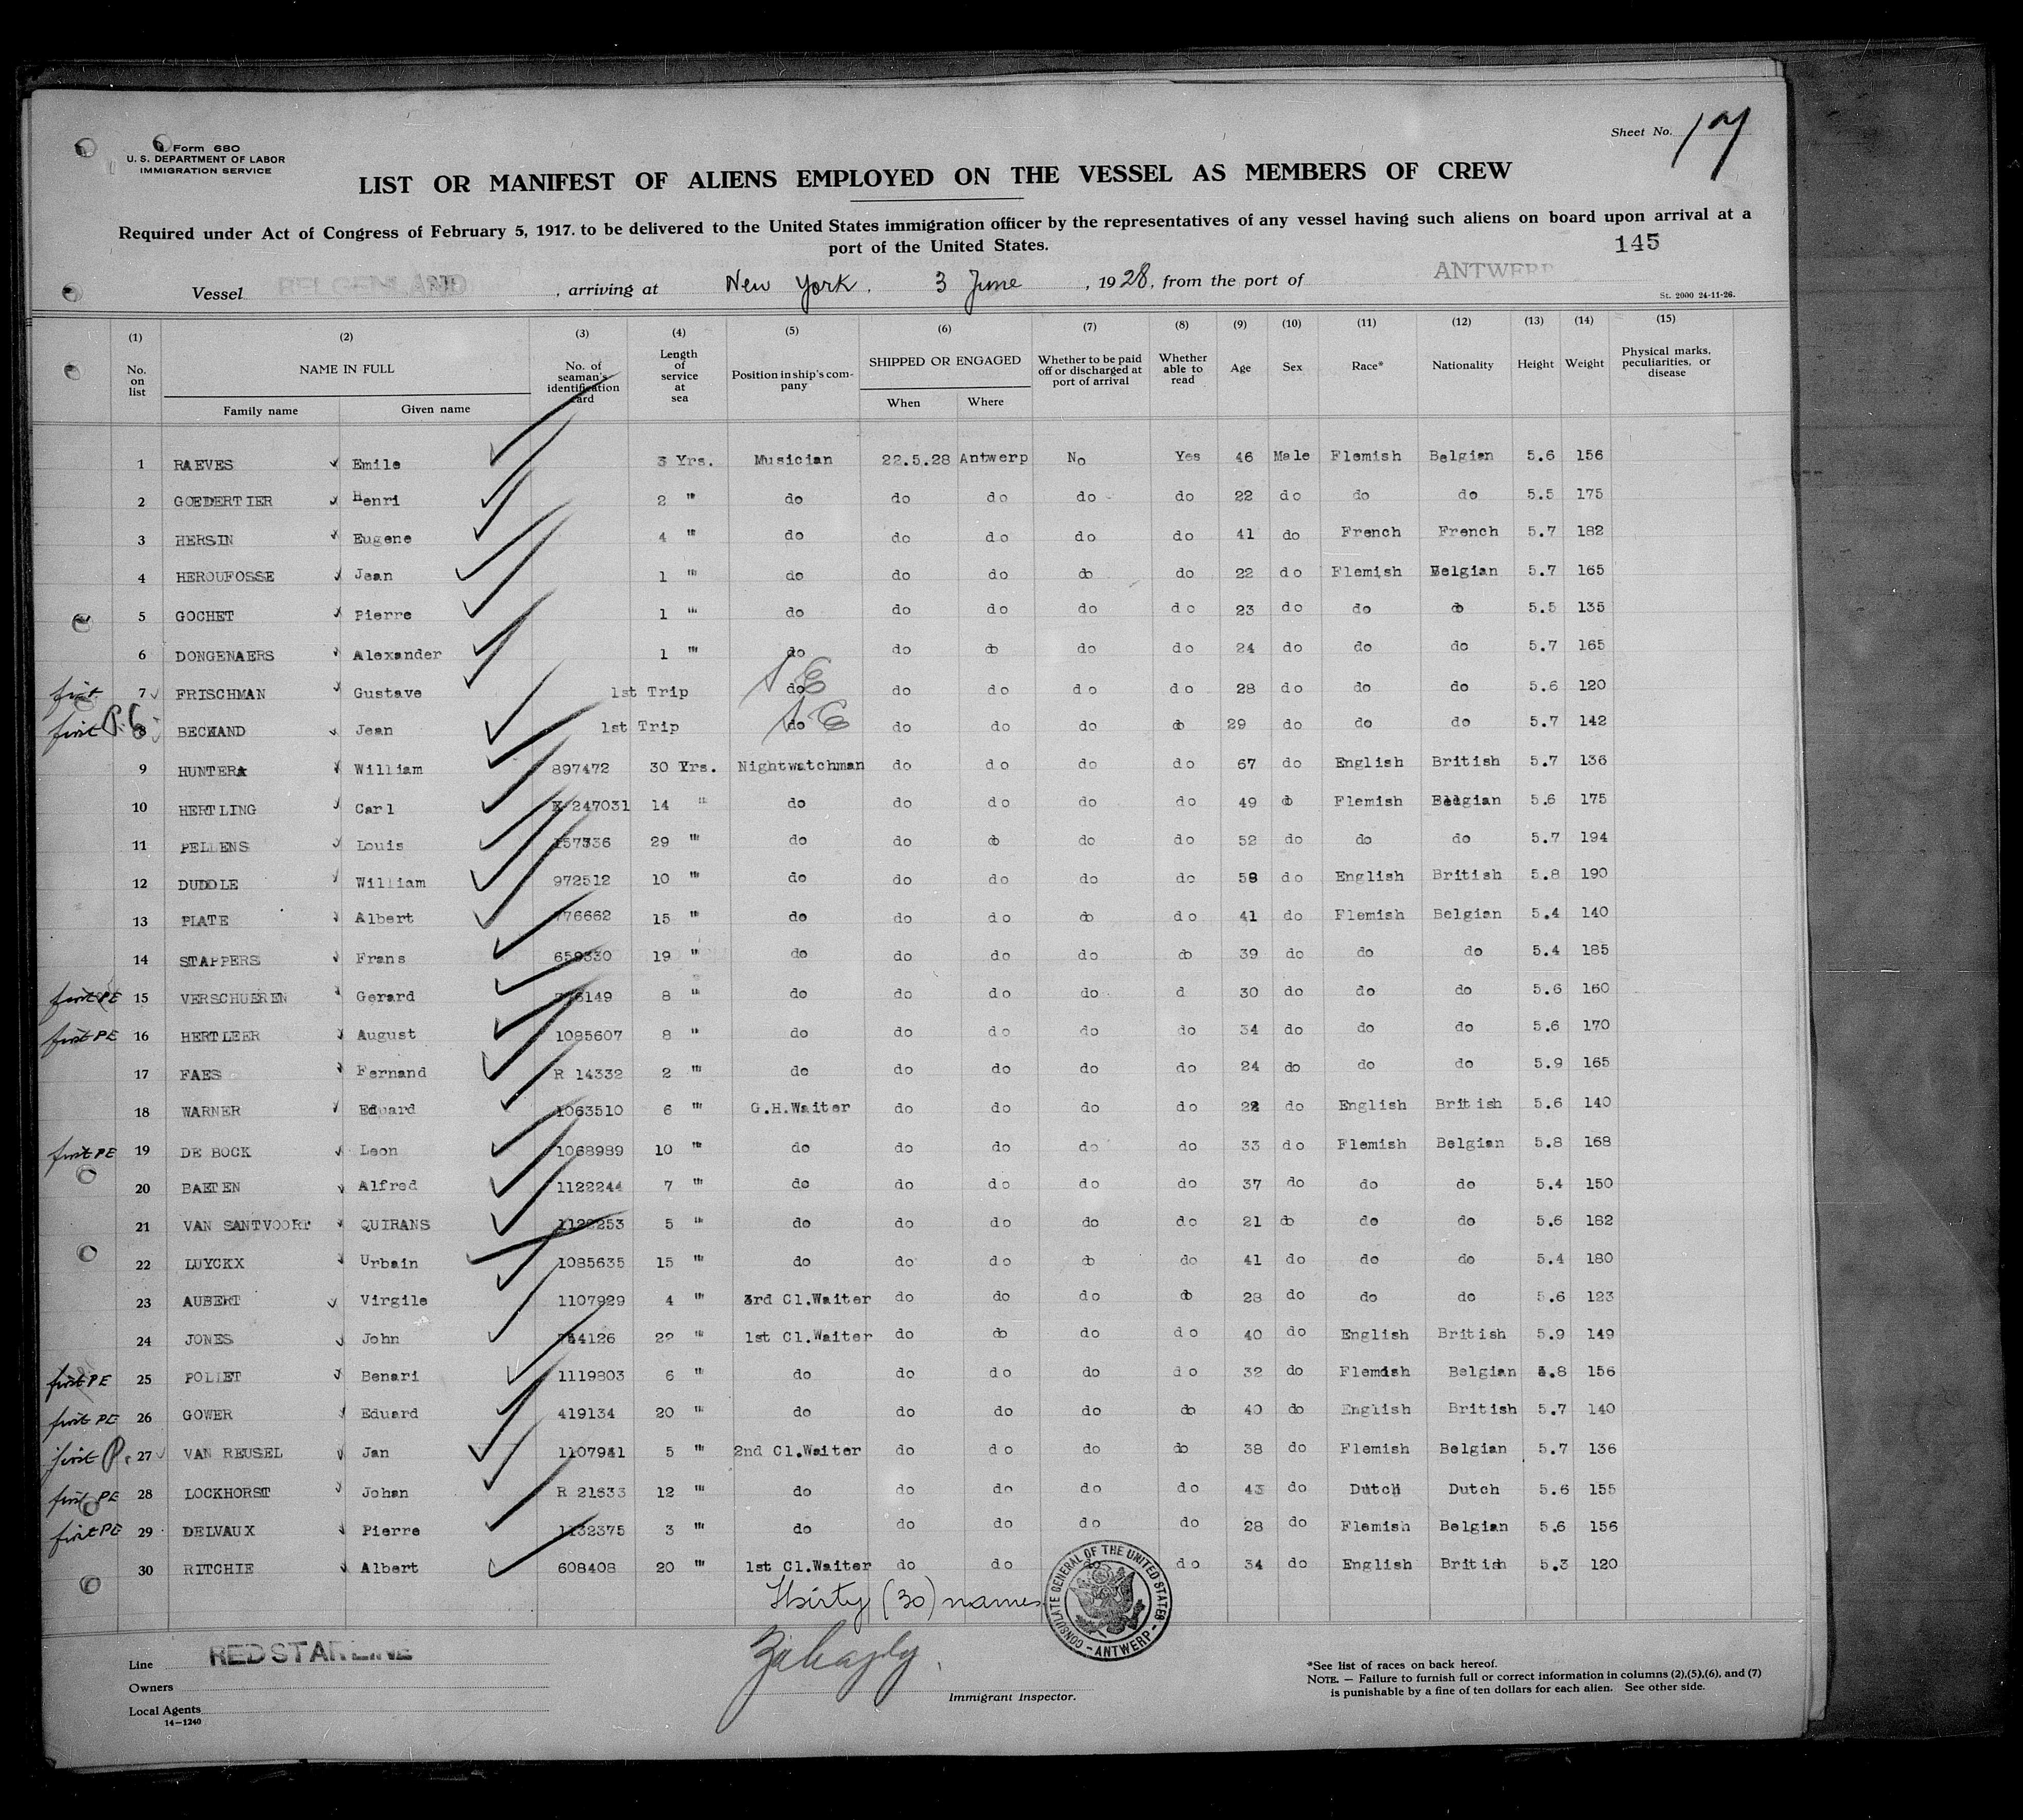 Form 680
U. S. DEPARTMENT OF LABOR
IMMIGRATION SERVICE
Sheet No. 17
LIST OR MANIFEST OF ALIENS EMPLOYED ON THE VESSEL AS MEMBERS OF CREW
Required under Act of Congress of February 5, 1917. to be delivered to the United States immigration officer by the representatives of any vessel having such aliens on board upon arrival at a
port of the United States.
145
Vessel BELGENLAND, arriving at New York, 3 June, 1928, from the port of ANTWERP
St. 2000 24-11-26.
(1) (2) (3) (4) (5) (6) (7) (8) (9) (10) (11) (12) (13) (14) (15)
No. on list NAME IN FULL Family name Given name No. of seaman's identification card Length of service at sea Position in ship's company SHIPPED OR ENGAGED When Where Whether to be paid off or discharged at port of arrival Whether able to read Age Sex Race* Nationality Height Weight Physical marks, peculiarities, or disease
1 RAEVES Emile 3 Yrs. Musician 22.5.28 Antwerp No Yes 46 Male Flemish Belgian 5.6 156
2 GOEDERTIER Henri 2 " do do do do do 22 do do do 5.5 175
3 HERSIN Eugene 4 " do do do do do 41 do French French 5.7 182
4 HEROUFOSSE Jean 1 " do do do do do 22 do Flemish Belgian 5.7 165
5 GOCHET Pierre 1 " do do do do do 23 do do do 5.5 135
6 DONGENAERS Alexander 1 " do do do do do 24 do do do 5.7 165
first 7 FRISCHMAN Gustave 1st Trip do do do do do 28 do do do 5.6 120
first P.E 8 BECKAND Jean 1st Trip do do do do do 29 do do do 5.7 142
9 HUNTER William 897472 30 Yrs. Nightwatchman do do do do 67 do English British 5.7 136
10 HERTLING Carl 247031 14 " do do do do do 49 do Flemish Belgian 5.6 175
11 PELLENS Louis 29 " do do do do do 52 do do do 5.7 194
12 DUDDLE William 972512 10 " do do do do do 58 do English British 5.8 190
13 PLATE Albert 776662 15 " do do do do do 41 do Flemish Belgian 5.4 140
14 STAPPERS Frans 19 " do do do do do 39 do do do 5.4 185
first PE 15 VERSCHUEREN Gerard 8 " do do do do d 30 do do do 5.6 160
first PE 16 HERTLEER August 1085607 8 " do do do do do 34 do do do 5.6 170
17 FAES Fernand R 14332 2 " do do do do do 24 do do do 5.9 165
18 WARNER Eduard 1063510 6 " G.H.Waiter do do do do 22 do English British 5.6 140
first PE 19 DE BOCK Leon 1068989 10 " do do do do do 33 do Flemish Belgian 5.8 168
20 BAETEN Alfred 1122244 7 " do do do do do 37 do do do 5.4 150
21 VAN SANTVOORT QUIRANS 1122253 5 " do do do do do 21 do do do 5.6 182
22 LUYCKX Urbain 1085635 15 " do do do do do 41 do do do 5.4 180
23 AUBERT Virgile 1107929 4 " 3rd Cl.Waiter do do do do 28 do do do 5.6 123
24 JONES John 22 " 1st Cl.Waiter do do do do 40 do English British 5.9 149
first PE 25 POLLET Benari 1119803 6 " do do do do do 32 do Flemish Belgian 156
first PE 26 GOWER Eduard 419134 20 " do do do do do 40 do English British 5.7 140
first P. 27 VAN REUSEL Jan 1107941 5 " 2nd Cl.Waiter do do do do 38 do Flemish Belgian 5.7 136
first PE 28 LOCKHORST Johan R 21633 12 " do do do do do 43 do Dutch Dutch 5.6 155
first PE 29 DELVAUX Pierre 1132375 3 " do do do do do 28 do Flemish Belgian 5.6 156
30 RITCHIE Albert 608408 20 " 1st Cl.Waiter do do do do 34 do English British 5.3 120
Thirty (30) names
CONSULATE GENERAL OF THE UNITED STATES - ANTWERP -
Line RED STAR LINE
Owners
Local Agents
14—1240
Immigrant Inspector.
*See list of races on back hereof.
NOTE. — Failure to furnish full or correct information in columns (2),(5),(6), and (7)
is punishable by a fine of ten dollars for each alien. See other side.